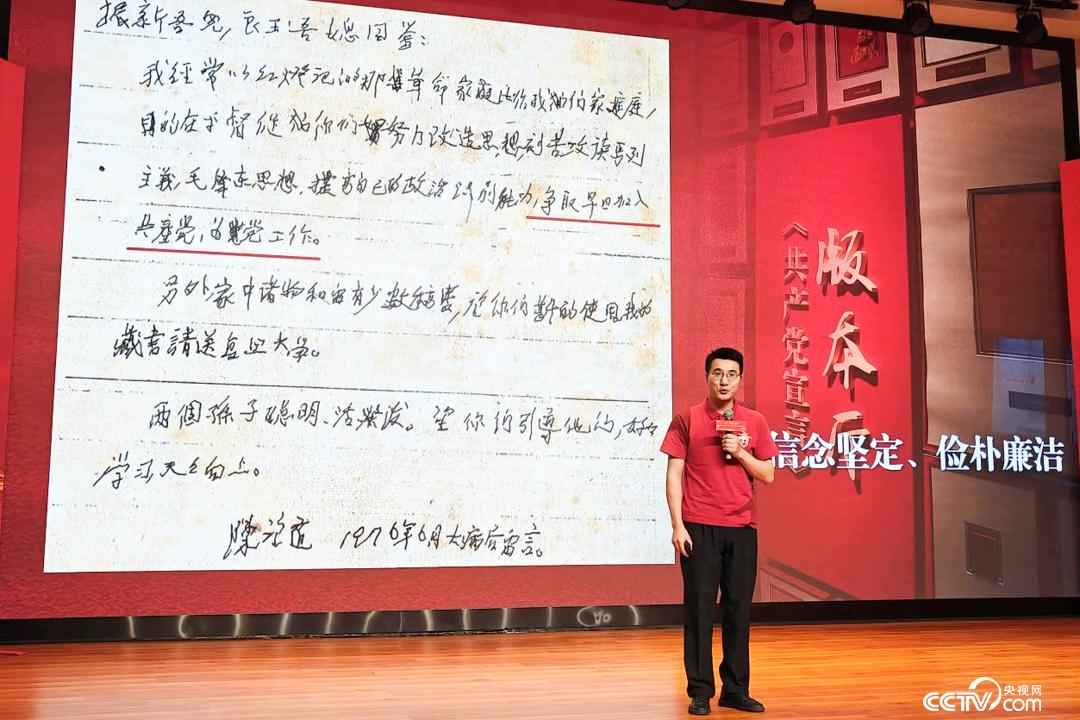 振新吾兒，良玉吾媳同鉴：
我经常以红灯记的那样革命家庭比你我们的家庭，
目的在于督促你们努力改造思想，刻苦攻读马列
主義，毛泽东思想，提高自己的政治识别能力，争取早日加入
共产党，为党工作。
另外家中诸物和留有少数稿费，於你们暂的使用，我的
藏書請送复旦大学。
两個孫子聰明、活潑。望你们引導他们，好好
学习天天向上。
陳望道 1976年6月大病后留言。
《共产党宣言
版本厅
信念坚定、俭朴廉洁
CCTV 央视网
com